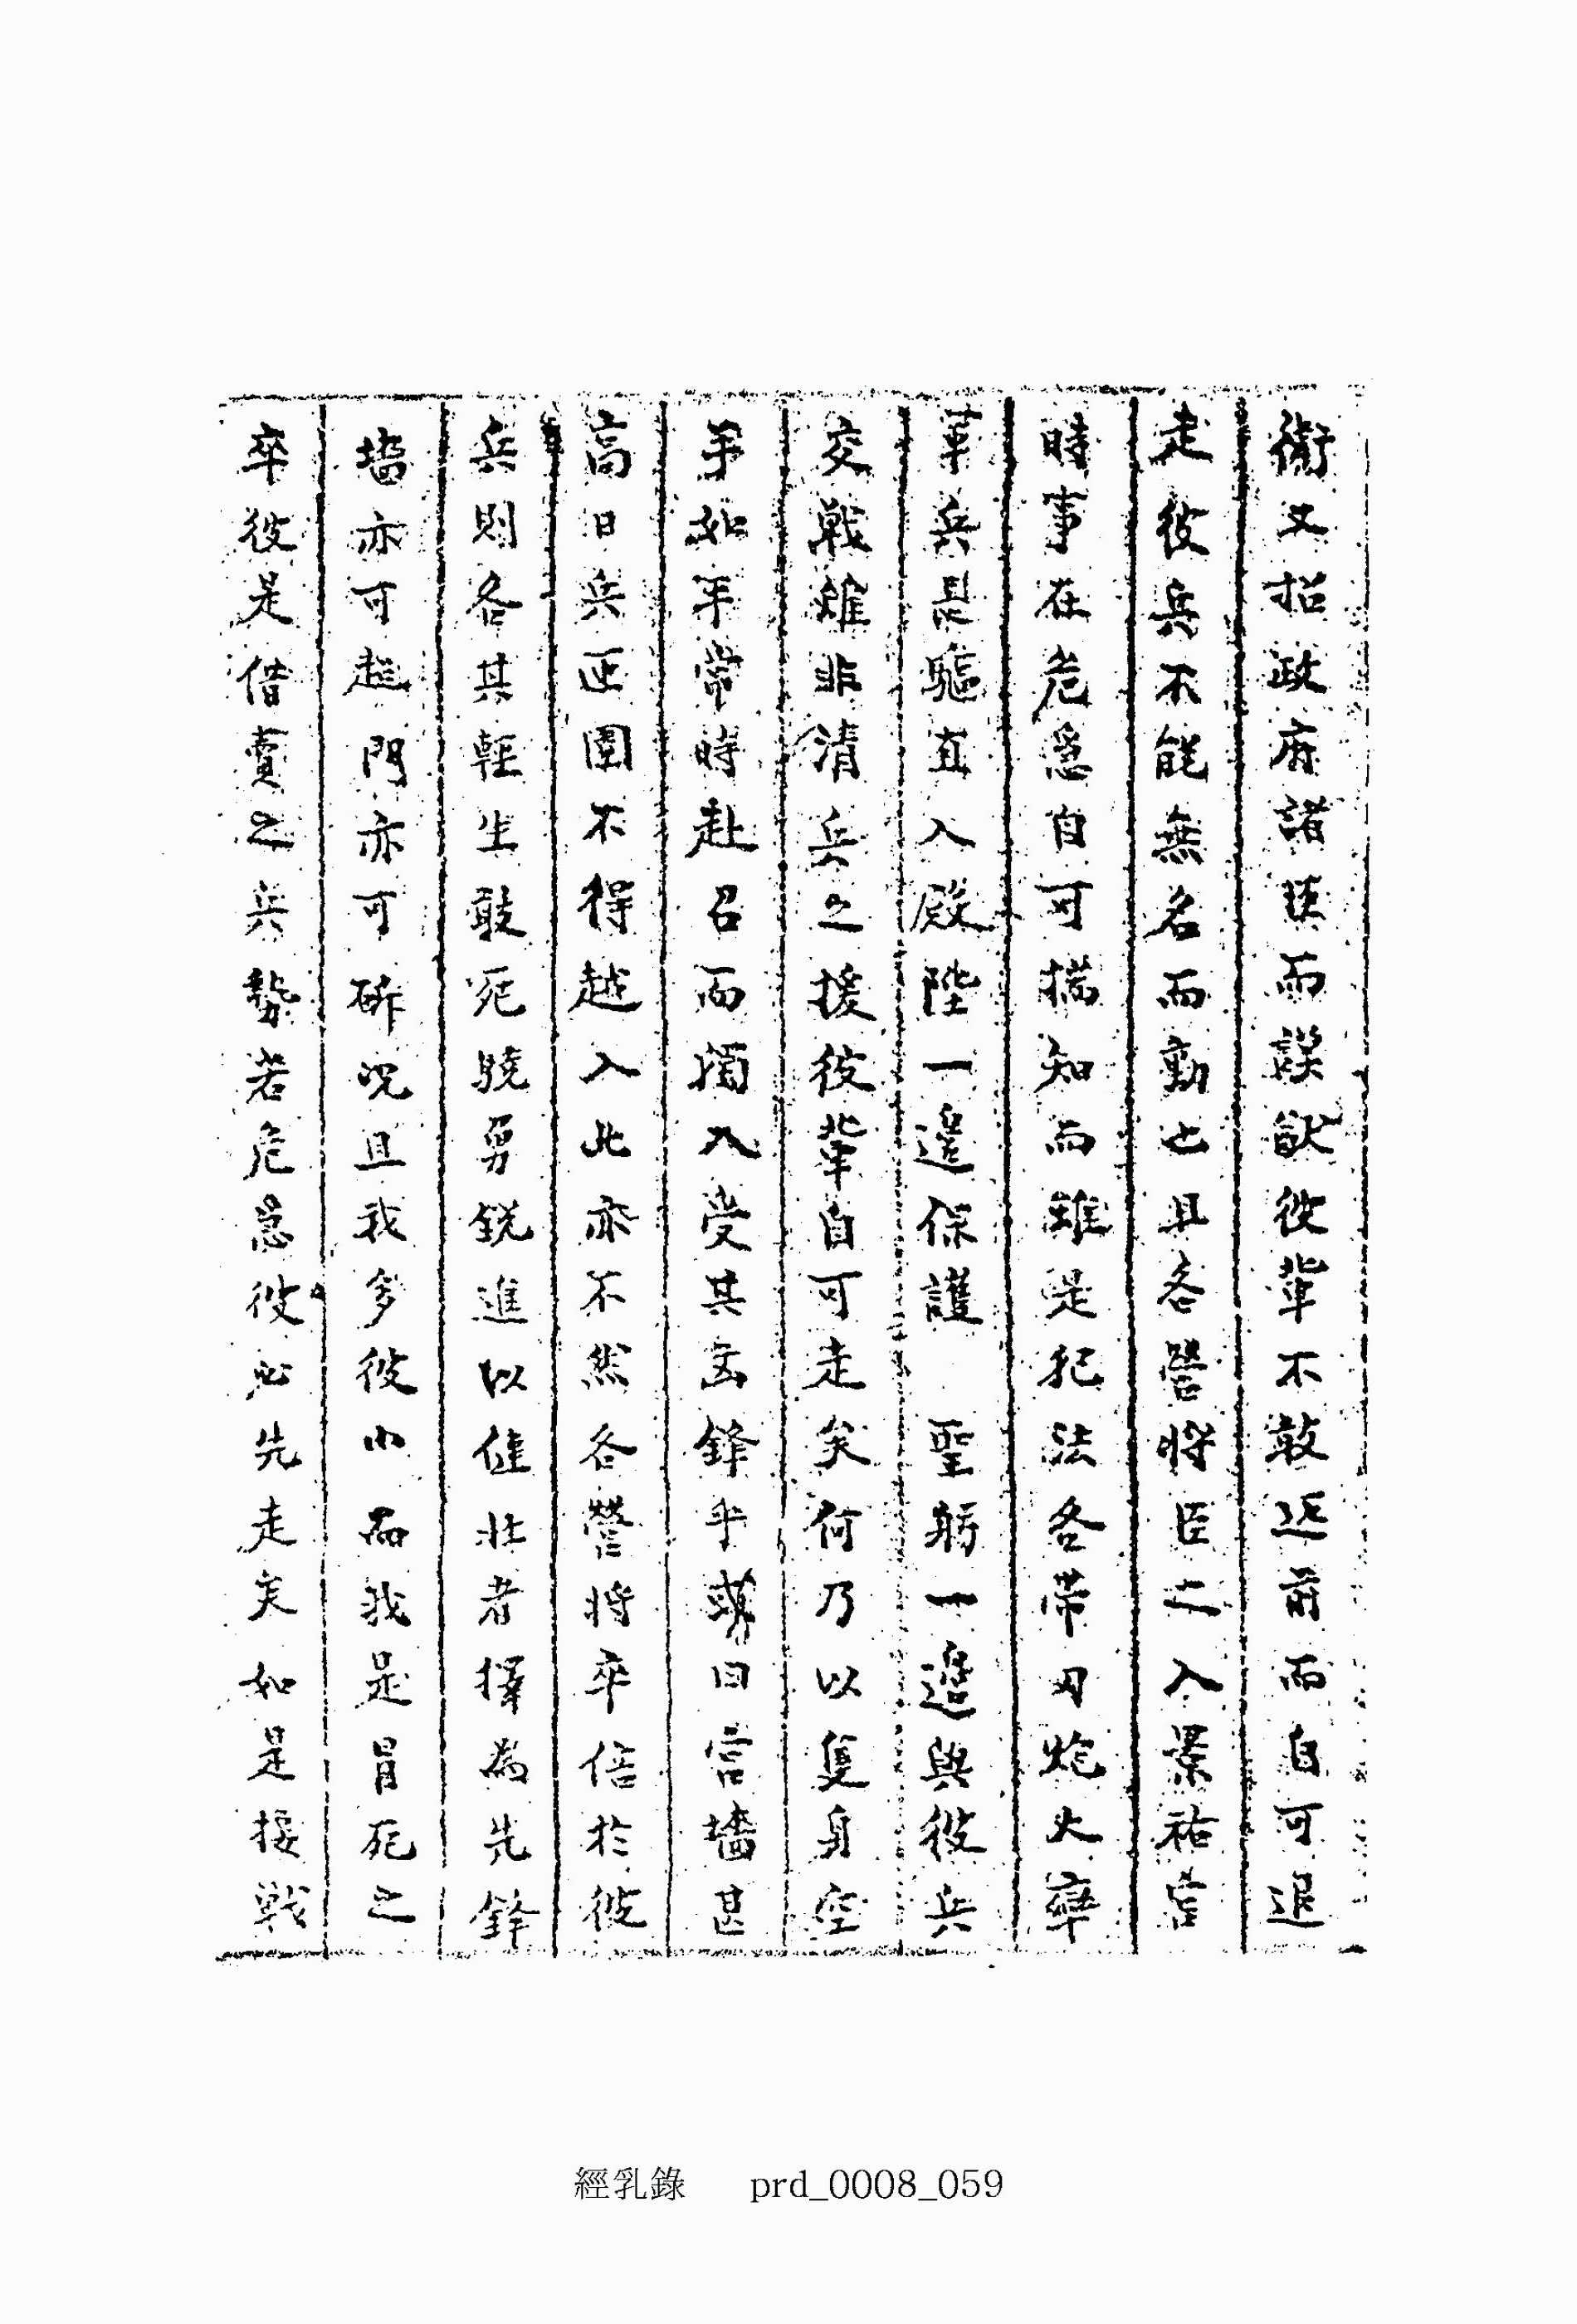 衛又招政府諸臣而謀猷彼輩不敢近前而自可退
走彼兵不能無名而動也且各營將臣之入景祐宮
時事在危急自可揣知而雖是犯法各帶刃炮火率
率兵長驅直入殿陛一邊保護 聖躬一邊與彼兵
交戰雖非清兵之援彼輩自可走矣何乃以隻身空
手如平常時赴召而獨入受其凶鋒乎或曰宮墻甚
高日兵匝圍不得越入此亦不然各營將卒倍於彼
兵則各其輕生敢死驍勇銳進以健壯者擇為先鋒
墻亦可超門亦可斫況且我多彼小而我是冒死之
卒彼是借賣之兵勢若危急彼必先走矣如是接戰
經乳錄 prd_0008_059